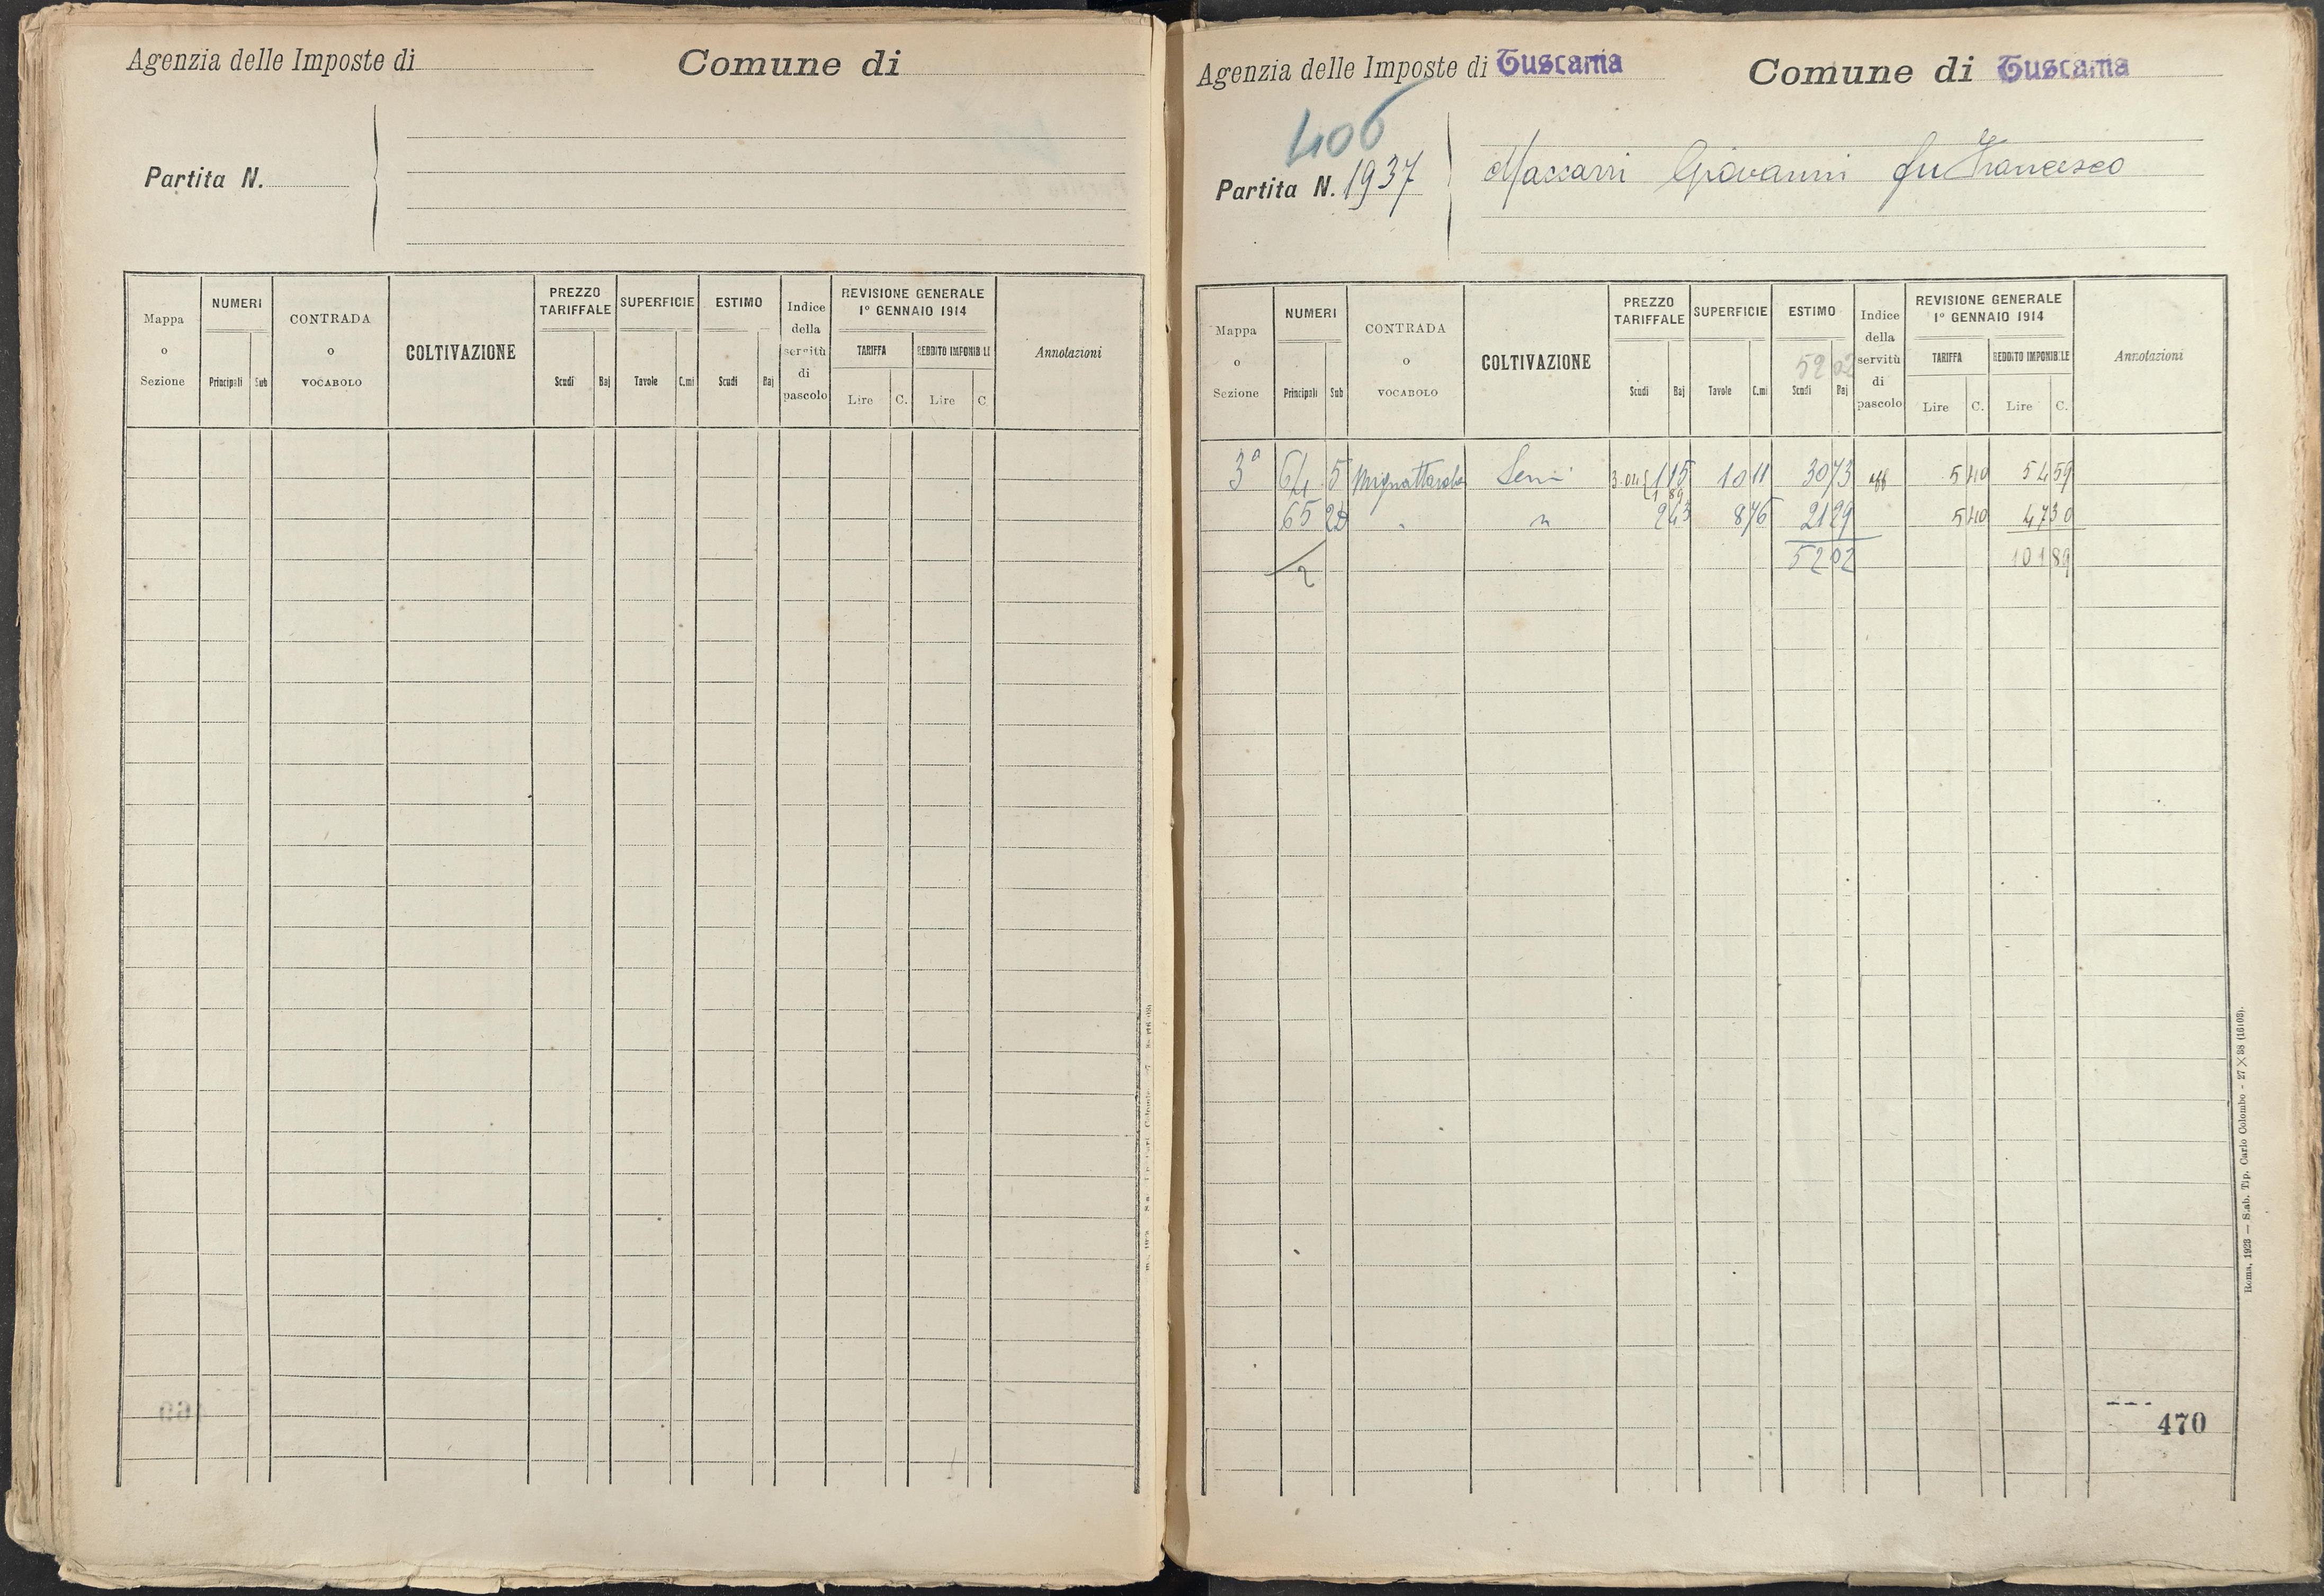 Agenzia delle Imposte di
Comune di
Partita N.
Mappa o Sezione
NUMERI
Principali Sub
CONTRADA o VOCABOLO
COLTIVAZIONE
PREZZO TARIFFALE
Scudi Baj
SUPERFICIE
Tavole C.mi
ESTIMO
Scudi Baj
Indice della servitù di pascolo
REVISIONE GENERALE
1° GENNAIO 1914
TARIFFA
REDDITO IMPONIBILE
Lire C. Lire C
Annotazioni
Agenzia delle Imposte di Tuscania
Comune di Tuscania
406
Partita N. 1937
Giovanni fu Francesco
Mappa o Sezione
NUMERI
Principali Sub
CONTRADA o VOCABOLO
COLTIVAZIONE
PREZZO TARIFFALE
Scudi Baj
SUPERFICIE
Tavole C.mi
ESTIMO
52 02
Scudi Baj
Indice della servitù di pascolo
REVISIONE GENERALE
1° GENNAIO 1914
TARIFFA
REDDITO IMPONIBILE
Lire C. Lire C.
Annotazioni
3ª 64 5 Sem 3.04 1 15 10 11 30 73 aff 5 40 54 59
1 89
65 " " 2 43 8 76 21 29 5 40 47 30
2 52 02 101 89
470
Roma, 1923 — Stab. Tip. Carlo Colombo - 27 × 38 (16103).